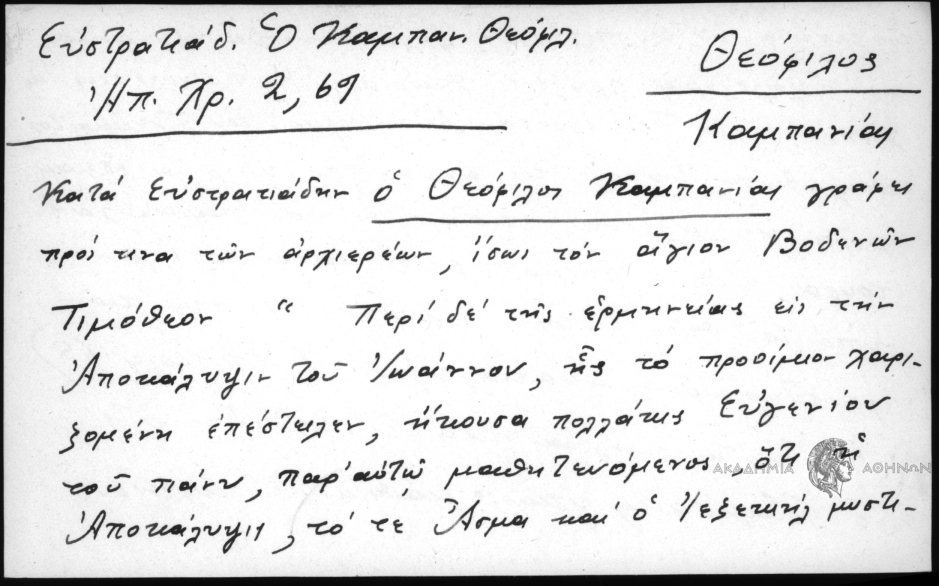 Εὐστρατιάδ. Ὁ Καμπαν. Θεόφιλ.
Ἠπ. Χρ. 2, 69
Θεόφιλος
Καμπανίας
Κατά Εὐστρατιάδην ὁ Θεόφιλος Καμπανίας γράφει
πρός τινα τῶν ἀρχιερέων, ἴσως τόν ἅγιον Βοδενῶν
Τιμόθεον " Περί δέ τῆς ἑρμηνείας εἰς τήν
Ἀποκάλυψιν τοῦ Ἰωάννου, ἧς τό προοίμιον χαρι-
ζομένη ἐπέστειλεν, ἤκουσα πολλάκις Εὐγενίου
τοῦ πάνυ, παρ' αὐτῷ μαθητευόμενος, ὅτι ἡ
Ἀποκάλυψις, τό τε Ἆσμα καί ὁ Ἰεζεκιήλ μυστι-
ΑΚΑΔΗΜΙΑ ΑΘΗΝΩΝ